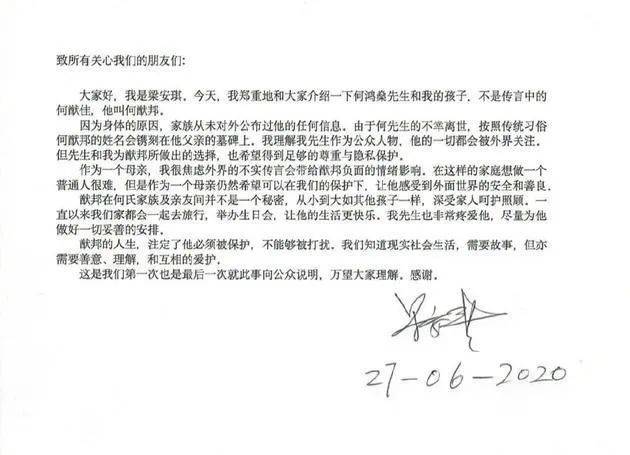 致所有关心我们的朋友们：
大家好，我是梁安琪。今天，我郑重地和大家介绍一下何鸿燊先生和我的孩子，不是传言中的
何猷佳，他叫何猷邦。
因为身体的原因，家族从未对外公布过他的任何信息。由于何先生的不幸离世，按照传统习俗
何猷邦的姓名会镌刻在他父亲的墓碑上。我理解我先生作为公众人物，他的一切都会被外界关注。
但先生和我为猷邦所做出的选择，也希望得到足够的尊重与隐私保护。
作为一个母亲，我很焦虑外界的不实传言会带给猷邦负面的情绪影响。在这样的家庭想做一个
普通人很难，但是作为一个母亲仍然希望可以在我们的保护下，让他感受到外面世界的安全和善良。
猷邦在何氏家族及亲友间并不是一个秘密，从小到大如其他孩子一样，深受家人呵护照顾。一
直以来我们家都会一起去旅行，举办生日会，让他的生活更快乐。我先生也非常疼爱他，尽量为他
做好一切妥善的安排。
猷邦的人生，注定了他必须被保护，不能够被打扰。我们知道现实社会生活，需要故事，但亦
需要善意、理解，和互相的爱护。
这是我们第一次也是最后一次就此事向公众说明，万望大家理解。感谢。
27-06-2020